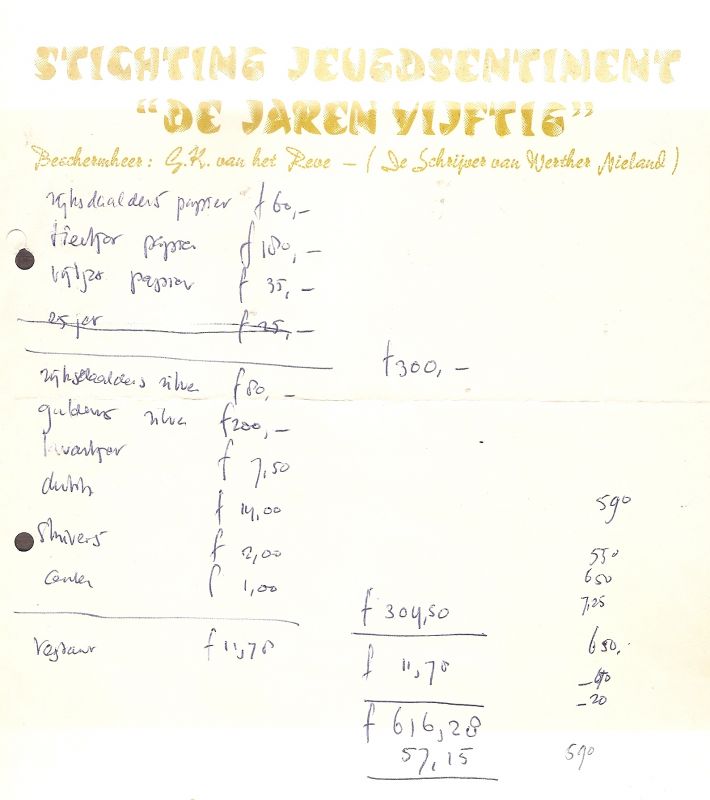 STICHTING JEUGDSENTIMENT
"DE JAREN VIJFTIG"
Beschermheer: G.K. van het Reve – ( De Schrijver van Werther Nieland )
rijksdaalders papier f 60,–
tientjes papier f 180,–
vijfjes papier f 35,–
25 jes f 25,–
f 300,–
rijksdaalders zilver f 80,–
guldens zilver f 200,–
kwartjes f 7,50
dubb f 14,00
590
Stuivers f 2,00
550
650
centen f 1,00
7,25
f 304,50
650,-
f 11,78
f 11,78
-20
f 616,28
57,15
590